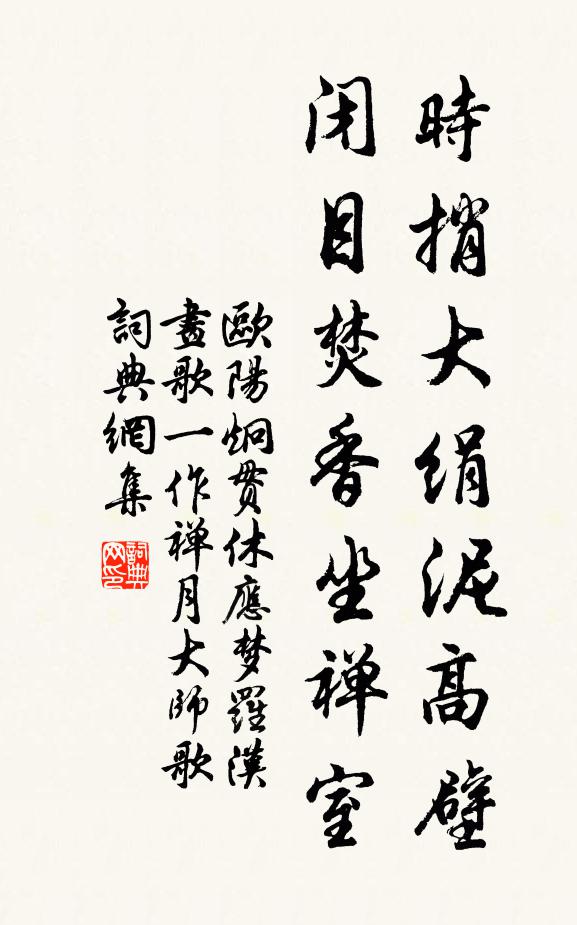 時捎大絹泥高壁
闭目焚香坐禅室
歐陽炯贯休應梦羅漢
畫歌一作禅月大師歌
詞典網集
詞典
网印